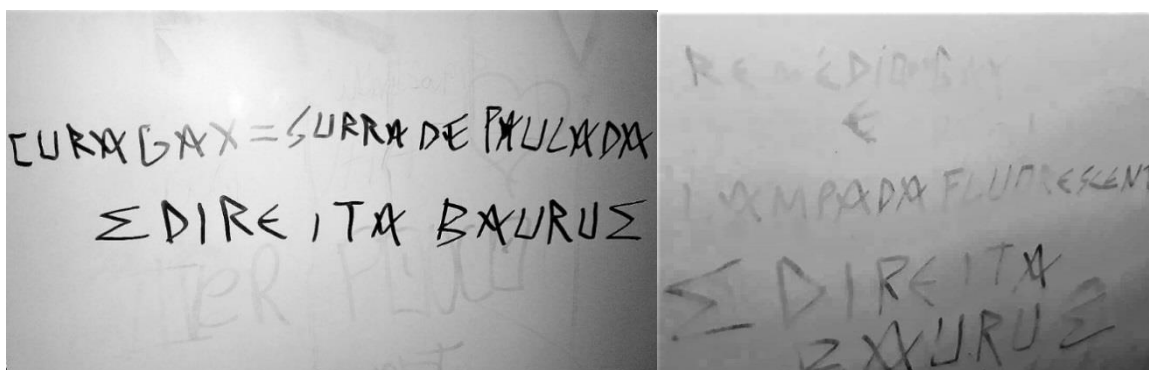 CURA GAY = SURRA DE PAULADA
Σ DIREITA BAURU Σ
REMÉDIO GAY
É
LAMPADA FLUORESCENT
Σ DIREITA
BAURU Σ